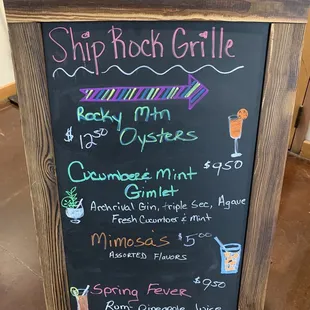 Ship Rock Grille
Rocky Mtn
$12.50 Oysters
Cucumber & Mint $9.50
Gimlet
Archrival Gin, triple Sec, Agave
Fresh Cucumber & Mint
Mimosa's $5.00
Assorted Flavors
Spring Fever $9.50
Rum, Pineapple Juice